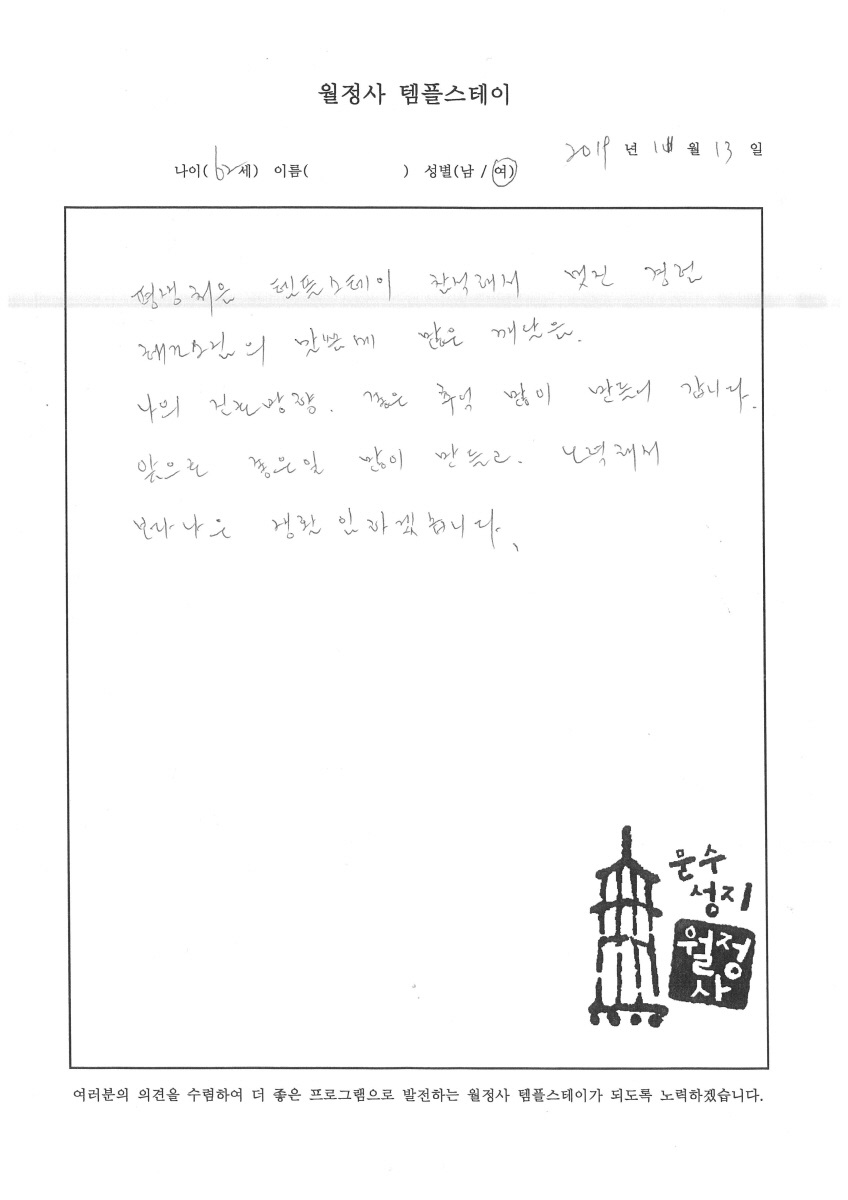 월정사 템플스테이
2019 년 월 13 일
나이( 62세) 이름( ) 성별(남 / 여)
평생 처음 템플스테이 참석해서 멋진 경험
의 말씀에 많은 깨낫음.
나의 건강 . 좋은 추억 많이 만들어 갑니다.
앞으로 좋은일 많이 만들고. 노력해서
보다 나은 생활 인 하겠습니다.
문수
성지
월정
사
여러분의 의견을 수렴하여 더 좋은 프로그램으로 발전하는 월정사 템플스테이가 되도록 노력하겠습니다.